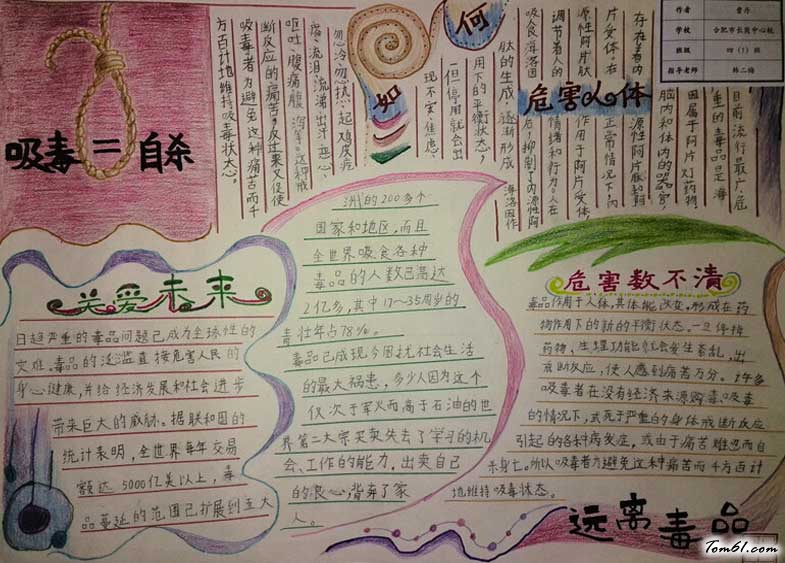 作者 曹丹
学校 合肥市长岗中心校
班级 四(1)班
指导老师 韩二梅
吸毒=自杀
如何
危害人体
目前流行最广、危
重的毒品是海
因属于阿片灯药物,
脑内和体内的器官,
存在着内
源性阿片肽和阿
片受体。在
正常情况下内
源性阿片肽
作用于阿片受体,
调节着人的
情绪和行为。人在
吸食洛因
后,抑制了内源性阿
肽的生成,逐渐形成
海洛因作
用下的平衡状态,
一但停用就会出
现不安、焦虑、
忽冷忽热、起鸡皮疙
瘩、流泪、流涕、出汗、恶心、
呕吐、腹痛、腹泻等。这种戒
断反应的痛苦,反过来又促使
吸毒者为避免这种痛苦而千
方百计地维持吸毒状态。
关爱未来
日趋严重的毒品问题已成为全球性的
灾难,毒品的泛滥直接危害人民的
身心健康,并给经济发展和社会进步
带来巨大的威胁。据联和国的
统计表明,全世界每年交易
额达5000亿美以上,毒
品蔓延的范围已扩展到五大
洲的200多个
国家和地区,而且
全世界吸食各种
毒品的人数已高达
2亿多,其中17~35周岁的
青壮年占78%。
毒品已成现今困扰社会生活
的最大祸患,多少人因为这个
仅次于军火而高于石油的世
界第二大宗买卖失去了学习的机
会、工作的能力,出卖自己
的良心,背弃了家
人。
危害数不清
毒品作用于人体,具体能改变,形成在药
物作用下的新的平衡状态,一旦停掉
药物,生理功能就会发生紊乱,出
戒断反应,使人感到痛苦万分。许多
吸毒者在没有经济来源购毒、吸毒
的情况下,或死于严重的身体戒断反应
引起的各种病发症,或由于痛苦难忍而自
杀身亡。所以吸毒者为避免这种痛苦而千方百计
地维持吸毒状态。
远离毒品
Tom61.com